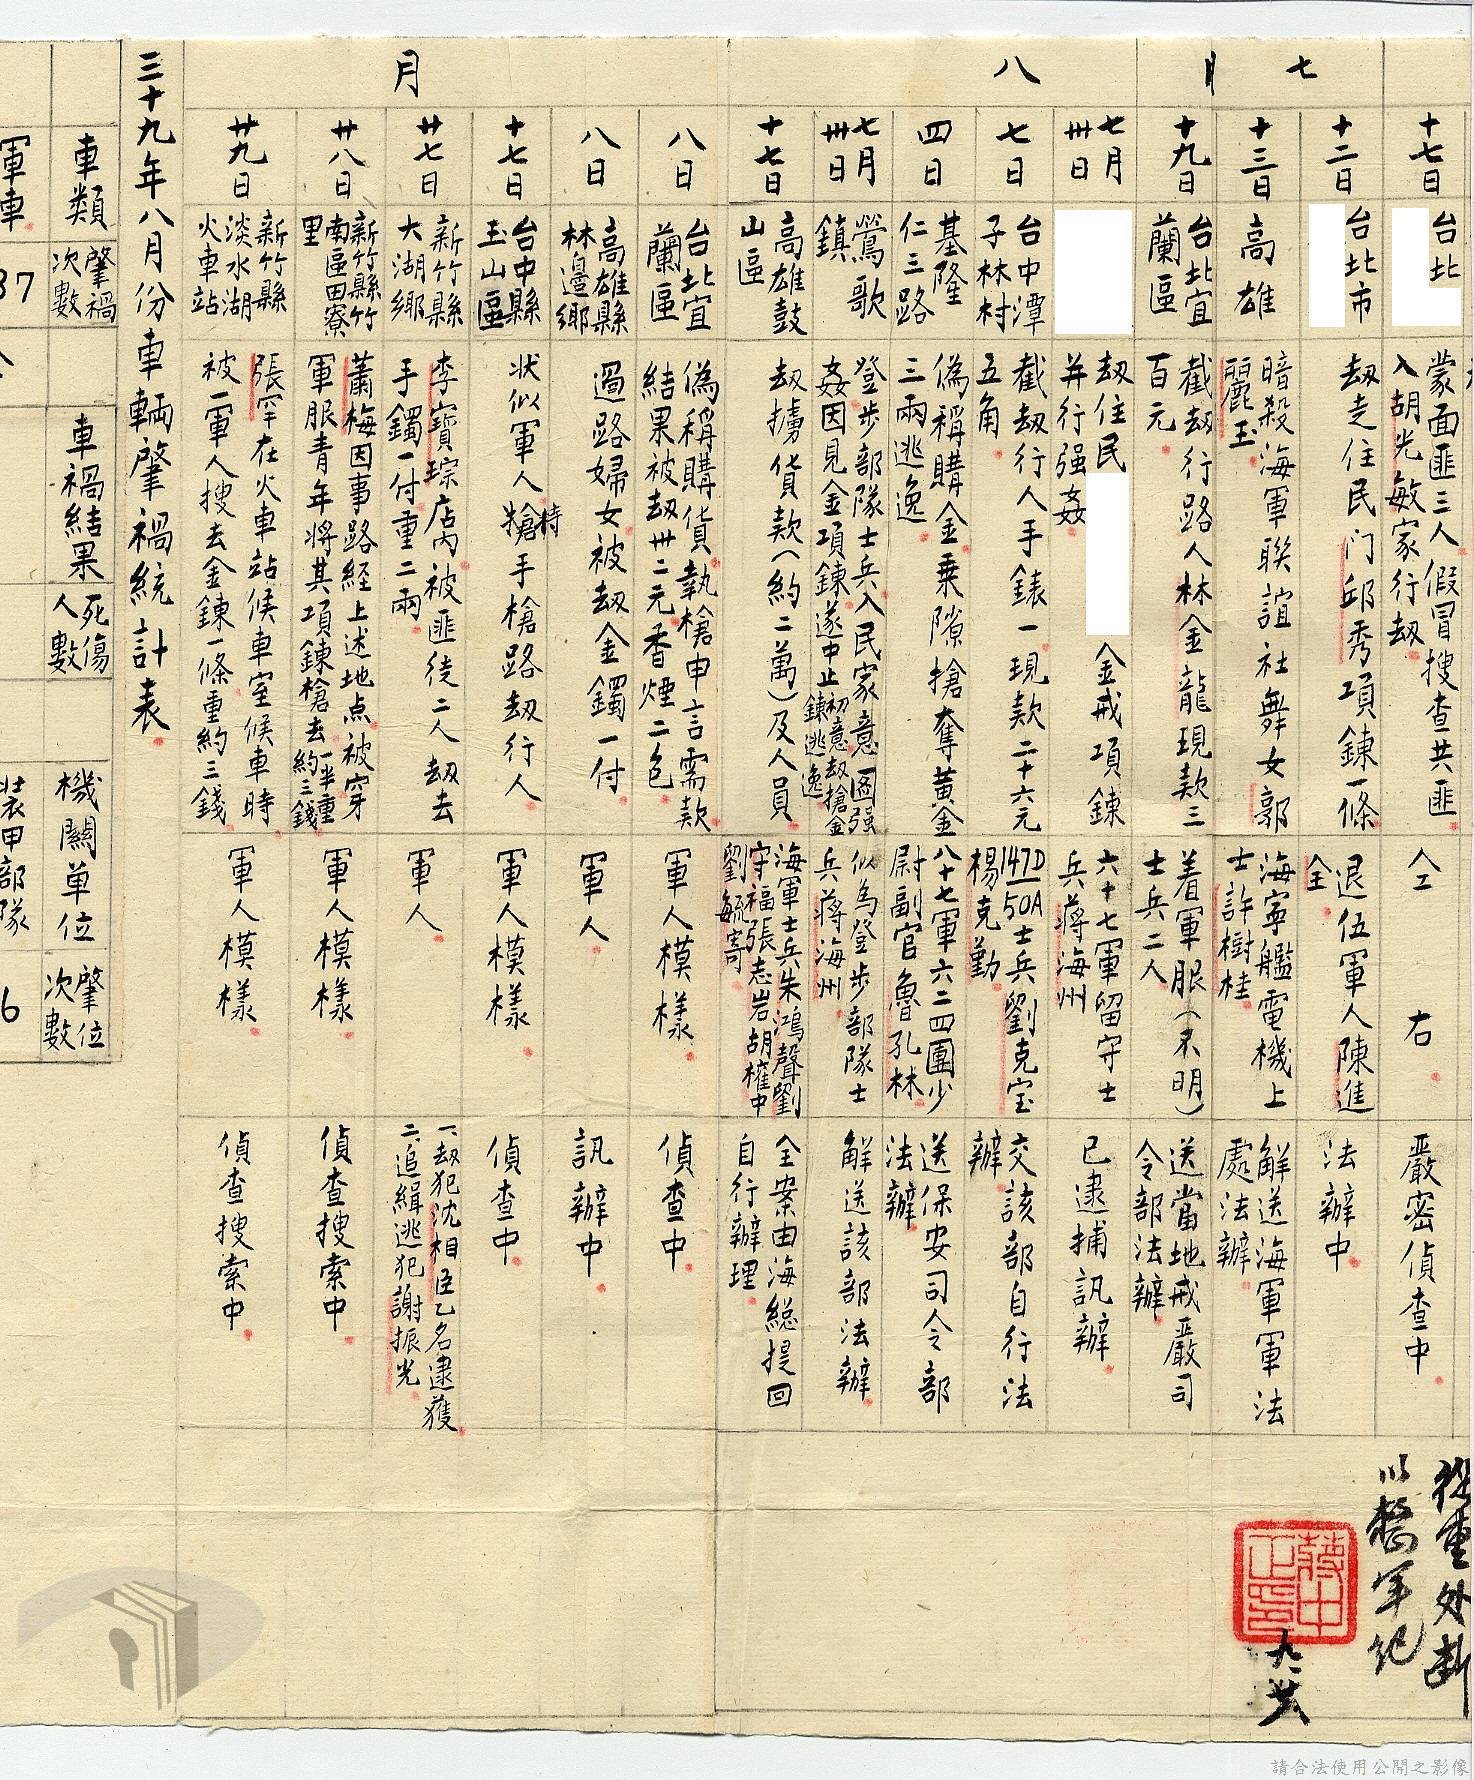 七月
十七日
台北
蒙面匪三人假冒搜查共匪
入胡光敏家行劫
仝右
嚴密偵查中
十二日
台北市
劫走住民门邱秀項鍊一條
退伍軍人陳進
全
法辦中
十三日
高雄
暗殺海軍聯誼社舞女郭
麗玉
海寧艦電機上
士許樹桂
解送海軍軍法
處法辦
十九日
台北宜
蘭區
截劫行路人林金龍現款三
百元
着軍服(不明)
士兵二人
送當地戒嚴司
令部法辦
八月
七月
卅日
劫住民 金戒項鍊
并行强姦
六十七軍留守士
兵蔣海州
已逮捕訊辦
七日
台中潭
子林村
截劫行人手錶一現款二十六元
五角
147D
50A士兵劉克宝
楊克勤
交該部自行法
辦
四日
基隆
仁三路
偽稱購金乗隙搶奪黃金
三兩逃逸
八十七軍六二四團少
尉副官魯孔林
送保安司令部
法辦
七月
卅日
鶯歌
鎮
登步部隊士兵入民家意圖强
姦因見金項鍊遂中止初意劫搶金
鍊逃逸
似為登步部隊士
兵蔣海州
解送該部法辦
十七日
高雄鼓
山區
劫擄貨款(約二萬)及人員
海軍士兵朱鴻聲劉
守福張志岩胡權中
劉毓寄
全案由海總提回
自行辦理
八日
台北宜
蘭區
偽稱購貨執槍申言需款
結果被劫卅二元香煙二包
軍人模樣
偵查中
八日
高雄縣
林邊鄉
過路婦女被劫金鐲一付
軍人
訊辦中
十七日
台中縣
玉山區
状似軍人持槍手槍路劫行人
軍人模樣
偵查中
廿七日
新竹縣
大湖鄉
李寶琮店內被匪徒二人劫去
手鐲一付重二兩
軍人
一、劫犯沈相臣乙名逮獲
二、追緝逃犯謝振光
廿八日
新竹縣竹
南區田寮
里
蕭梅因事路経上述地点被穿
軍服青年將其項鍊槍去一半重
約三錢
軍人模樣
偵查搜索中
廿九日
新竹縣
淡水湖
火車站
張罕在火車站候車室候車時
被一軍人搜去金鍊一條重約三錢
軍人模樣
偵查搜索中
從重处斷
以整軍紀
九.廿六
三十九年八月份車輛肇禍統計表
車類
肇禍
次數
車禍結果
死傷
人數
機關單位
肇位
次數
軍車
37
裝甲部隊
6
請合法使用公開之影像